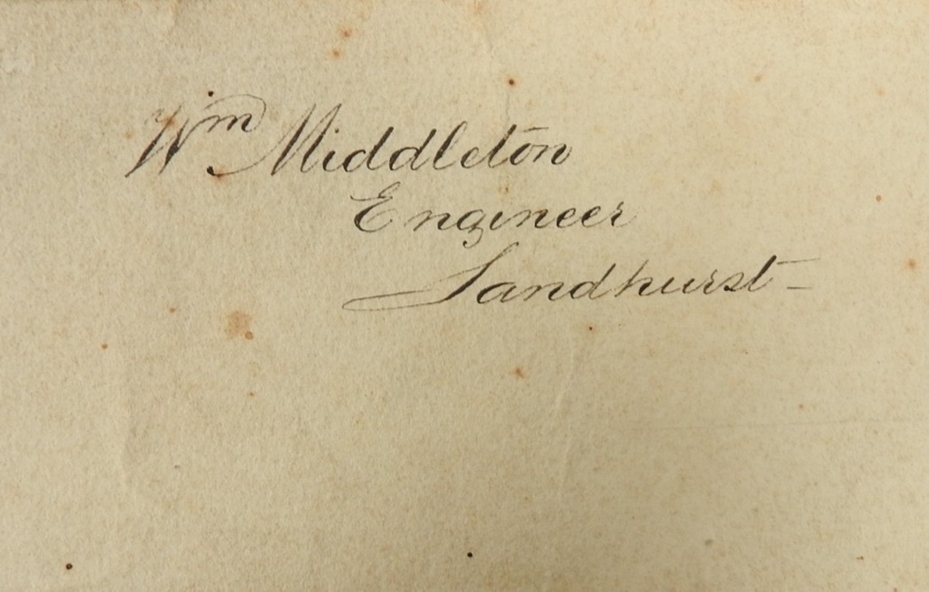 Wm Middleton
Engineer
Sandhurst -